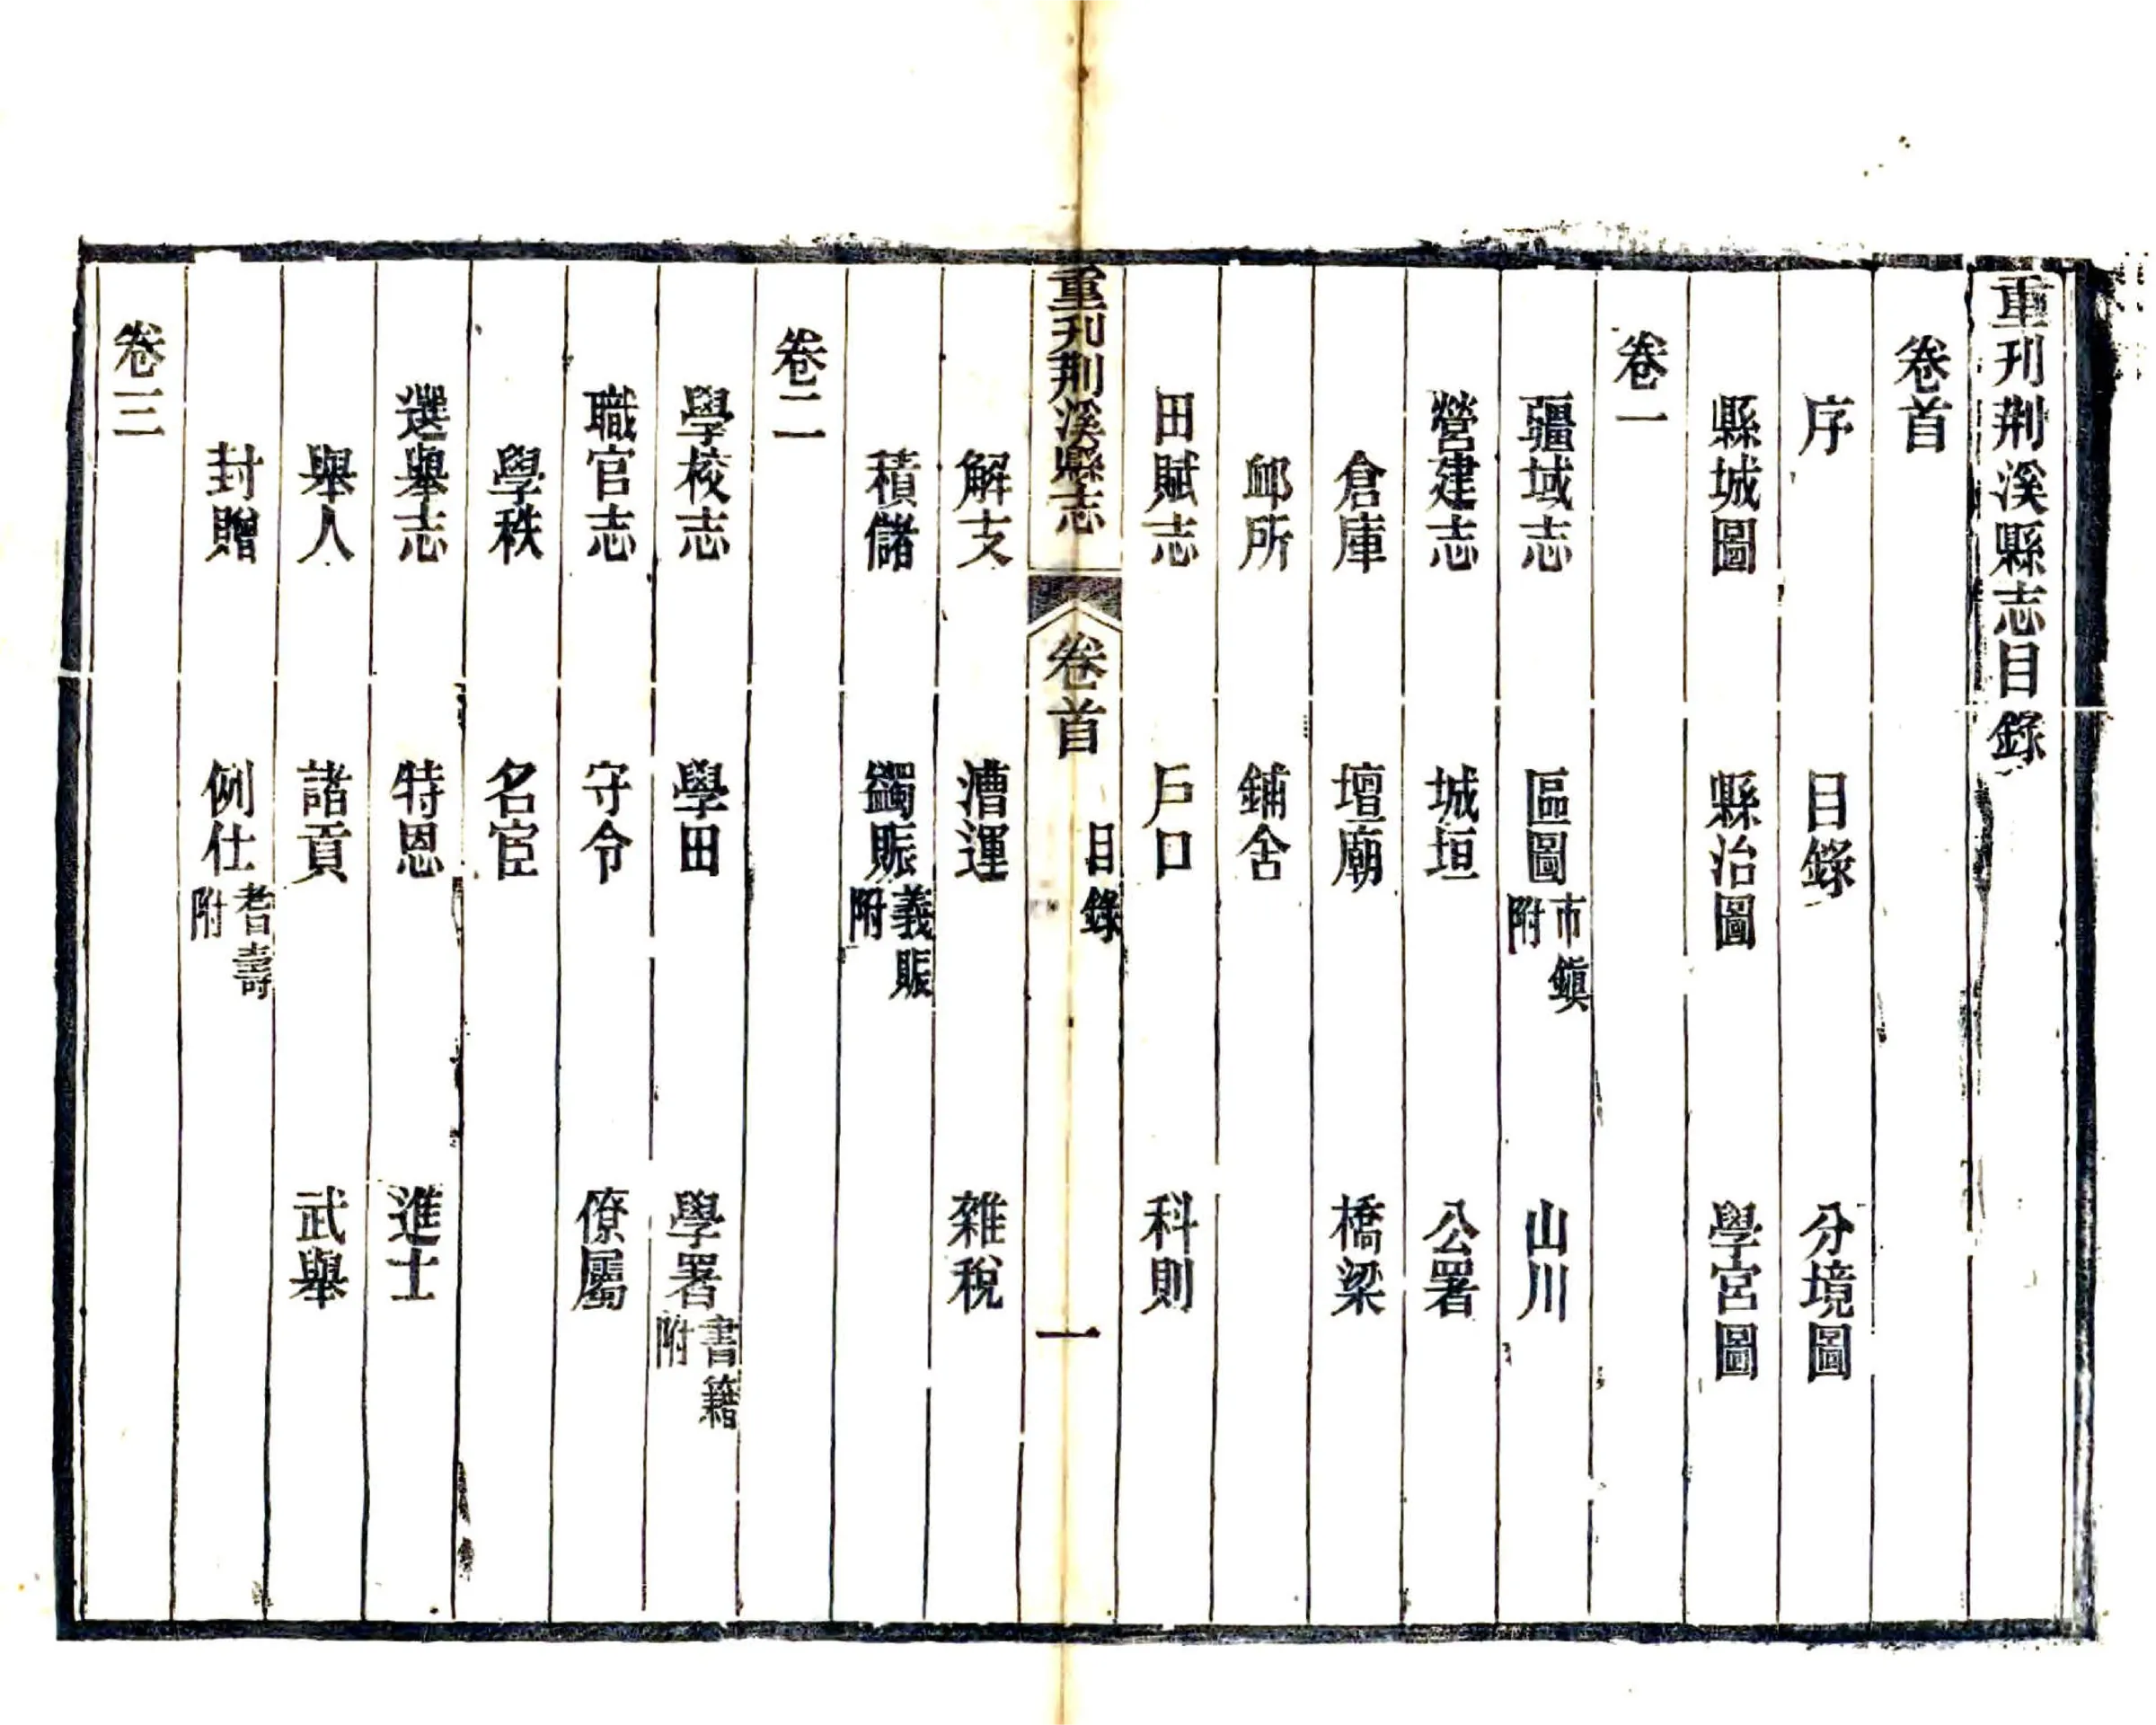 重刋荆溪縣志目錄
卷首
序 目錄 分境圖
縣城圖 縣治圖 學宮圖
卷一
疆域志 區圖市鎮附 山川
營建志 城垣 公署
倉庫 壇廟 橋梁
卹所 鋪舍
田賦志 戶口 科則
重刋荆溪縣志 卷首 目錄 一
解支 漕運 雜稅
積儲 蠲賑義賑附
卷二
學校志 學田 學署書籍附
職官志 守令 僚屬
學秩 名宦
選舉志 特恩 進士
舉人 諸貢 武舉
封贈 例仕耆壽附
卷三